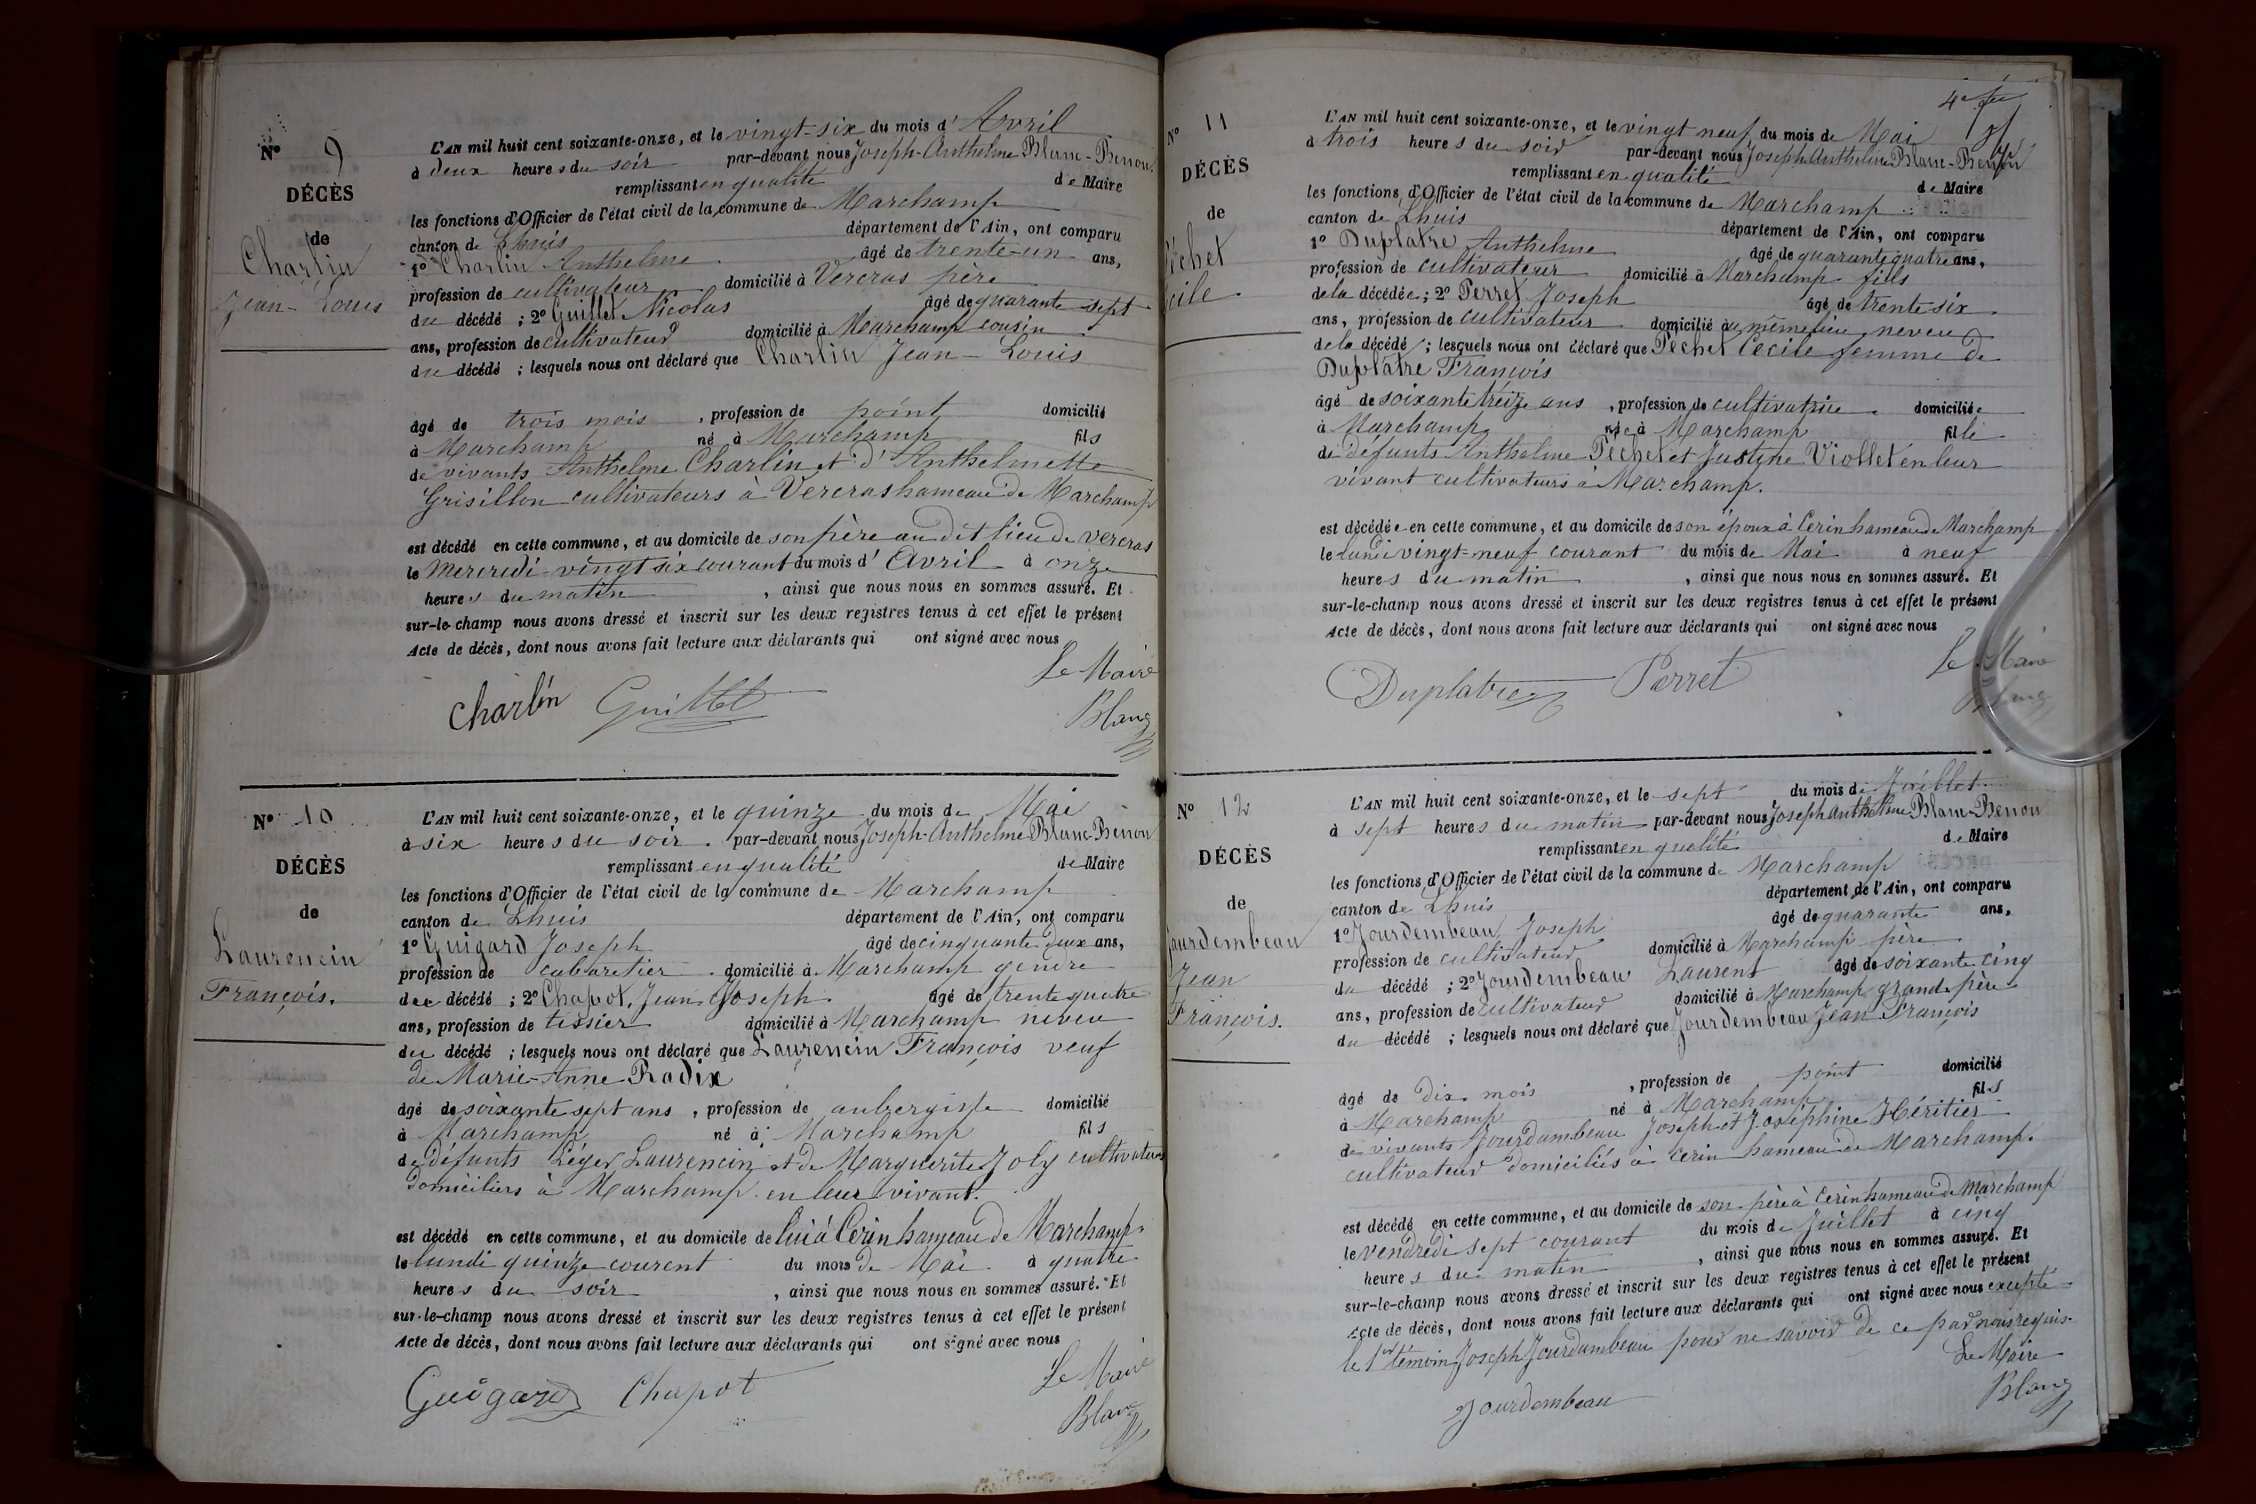 N° 9
DÉCÈS
de
Charlin
Jean-Louis
L'AN mil huit cent soixante-onze, et le vingt-six du mois d'Avril
à deux heures du soir par-devant nous Joseph-Anthelme Blanc-Benon
remplissant en qualité de Maire
les fonctions d'Officier de l'état civil de la commune de Marchamp
canton de Lhuis département de l'Ain, ont comparu
1° Charlin Anthelme âgé de trente-un ans,
profession de cultivateur domicilié à Vercras père
du décédé ; 2° Guillet Nicolas âgé de quarante sept
ans, profession de cultivateur domicilié à Marchamp cousin
du décédé ; lesquels nous ont déclaré que Charlin Jean-Louis
âgé de trois mois , profession de point domicilié
à Marchamp né à Marchamp fils
de vivants Anthelme Charlin et d'Anthelmette
Grisillon cultivateurs à Vercras hameau de Marchamp
est décédé en cette commune, et au domicile de son père au dit lieu de Vercras
le Mercredi vingt six courant du mois d'Avril à onze
heures du matin , ainsi que nous nous en sommes assuré. Et
sur-le-champ nous avons dressé et inscrit sur les deux registres tenus à cet effet le présent
Acte de décès, dont nous avons fait lecture aux déclarants qui ont signé avec nous
Le Maire
Charlin Guillet Blanc
N° 10
DÉCÈS
de
Laurencin
François.
L'AN mil huit cent soixante-onze, et le quinze du mois de Mai
à six heures du soir par-devant nous Joseph-Anthelme Blanc-Benon
remplissant en qualité de Maire
les fonctions d'Officier de l'état civil de la commune de Marchamp
canton de Lhuis département de l'Ain, ont comparu
1° Guigard Joseph âgé de cinquante deux ans,
profession de cabaretier domicilié à Marchamp gendre
du décédé ; 2° Chapot Jean Joseph âgé de trente quatre
ans, profession de tissier domicilié à Marchamp neveu
du décédé ; lesquels nous ont déclaré que Laurencin François veuf
de Marie-Anne Radix
âgé de soixante sept ans , profession de aubergiste domicilié
à Marchamp né à Marchamp fils
de défunts Léger Laurencin et de Marguerite Joly cultivateurs
domiciliers à Marchamp en leur vivant.
est décédé en cette commune, et au domicile de lui à Cerin hameau de Marchamp
le lundi quinze courent du mois de Mai à quatre
heures du soir , ainsi que nous nous en sommes assuré. Et
sur-le-champ nous avons dressé et inscrit sur les deux registres tenus à cet effet le présent
Acte de décès, dont nous avons fait lecture aux déclarants qui ont signé avec nous
Le Maire
Guigard Chapot Blanc
4e
N° 11
DÉCÈS
de
Péchet
Cécile
L'AN mil huit cent soixante-onze, et le vingt neuf du mois de Mai
à trois heures du soir par-devant nous Joseph Anthelme Blanc-Benon
remplissant en qualité de Maire
les fonctions d'Officier de l'état civil de la commune de Marchamp
canton de Lhuis département de l'Ain, ont comparu
1° Duplatre Anthelme âgé de quarante quatre ans,
profession de cultivateur domicilié à Marchamp fils
de la décédée ; 2° Perret Joseph âgé de trente six
ans, profession de cultivateur domicilié au même lieu neveu
de la décédé ; lesquels nous ont déclaré que Péchet Cécile femme de
Duplâtre François
âgé de soixante treize ans , profession de cultivatrice domiciliée
à Marchamp née à Marchamp fille
de défunts Anthelme Péchet et Justine Viollet en leur
vivant cultivateurs à Marchamp.
est décédée en cette commune, et au domicile de son époux à Cerin hameau de Marchamp
le lundi vingt-neuf courant du mois de Mai à neuf
heures du matin , ainsi que nous nous en sommes assuré. Et
sur-le-champ nous avons dressé et inscrit sur les deux registres tenus à cet effet le présent
Acte de décès, dont nous avons fait lecture aux déclarants qui ont signé avec nous
Le Maire
Duplatre Perret Blanc
N° 12
DÉCÈS
de
Jourdembeau
Jean
François.
L'AN mil huit cent soixante-onze, et le sept du mois de Juillet
à sept heures du matin par-devant nous Joseph Anthelme Blanc-Benon
remplissant en qualité de Maire
les fonctions d'Officier de l'état civil de la commune de Marchamp
canton de Lhuis département de l'Ain, ont comparu
1° Jourdembeau Joseph âgé de quarante ans,
profession de cultivateur domicilié à Marchamp père
du décédé ; 2° Jourdembeau Laurent âgé de soixante cinq
ans, profession de cultivateur domicilié à Marchamp grand père
du décédé ; lesquels nous ont déclaré que Jourdembeau Jean François
âgé de dix mois , profession de point domicilié
à Marchamp né à Marchamp fils
de vivants Jourdambeau Joseph et Joséphine Héritier
cultivateur domiciliés à Cerin hameau de Marchamp.
est décédé en cette commune, et au domicile de son père à Cerin hameau de Marchamp
le vendredi sept courant du mois de Juillet à cinq
heures du matin , ainsi que nous nous en sommes assuré. Et
sur-le-champ nous avons dressé et inscrit sur les deux registres tenus à cet effet le présent
Acte de décès, dont nous avons fait lecture aux déclarants qui ont signé avec nous excepté
le 1er témoin Joseph Jourdambeau pour ne savoir de ce par nous requis.
Le Maire
Jourdembeau Blanc